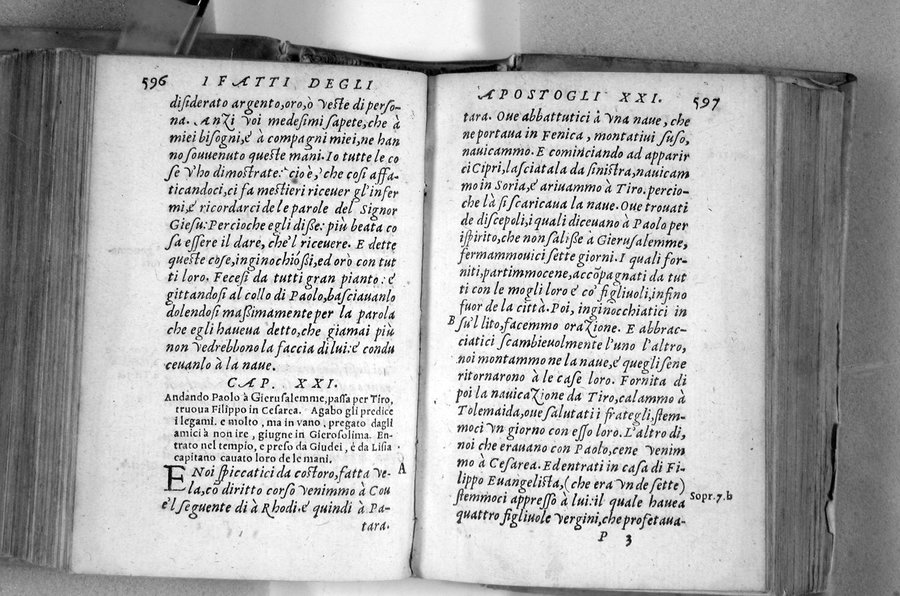 596 I FATTI DEGLI
disiderato argento, oro, ò veste di perso-
na. Anzi voi medesimi sapete, che à
miei bisogni, é à compagni miei, ne han
no souuenuto queste mani. Io tutte le co
se v'ho dimostrate: cioè, che cosi affa-
ticandoci, ci fa mestieri riceuer gl'infer
mi, é ricordarci de le parole del Signor
Giesu: Percioche egli diße: più beata co
sa essere il dare, che'l riceuere. E dette
queste cose, inginochioßi, ed orò con tut
ti loro. Fecesi da tutti gran pianto: é
gittandosi al collo di Paolo, basciauanlo
dolendosi maßimamente per la parola
che egli haueua detto, che giamai più
non vedrebbono la faccia di lui: é condu
ceuanlo à la naue.
CAP. XXI.
Andando Paolo à Gierusalemme, passa per Tiro,
truoua Filippo in Cesarea. Agabo gli predice
i legami. e molto, ma in vano, pregato dagli
amici à non ire, giugne in Gierosolima. En-
trato nel tempio, e preso da Giudei, é da Lisia
capitano cauato loro de le mani.
A
E Noi spiccatici da costoro, fatta ve-
la, cō diritto corso venimmo à Cou
é'l seguente dì à Rhodi. é quindi à Pa-
tara.
APOSTOGLI XXI. 597
tara. Oue abbattutici à vna naue, che
ne portaua in Fenica, montatiui suso,
nauicammo. E cominciando ad apparir
ci Cipri, lasciatala da sinistra, nauicam
mo in Soria, é ariuammo à Tiro. percio-
che là si scaricaua la naue. Oue trouati
de discepoli, i quali diceuano à Paolo per
ispirito, che non saliße à Gierusalemme,
fermammouici sette giorni. I quali for-
niti, partimmocene, accōpagnati da tut
ti con le mogli loro é co' figliuoli, infino
fuor de la città. Poi, inginocchiatici in
B su'l lito, facemmo orazione. E abbrac-
ciatici scambieuolmente l'uno l'altro,
noi montammo ne la naue, é quegli sene
ritornarono à le case loro. Fornita di
poi la nauicazione da Tiro, calammo à
Tolemaida, oue salutati i frategli, stem-
moci vn giorno con esso loro. L'altro dì,
noi che erauano con Paolo, cene venim
mo à Cesarea. Ed entrati in casa di Fi-
lippo Euangelista, (che era vn de sette)
stemmoci appresso à lui: il quale hauea
Sopr. 7. b
quattro figliuole vergini, che profetaua-
P 3